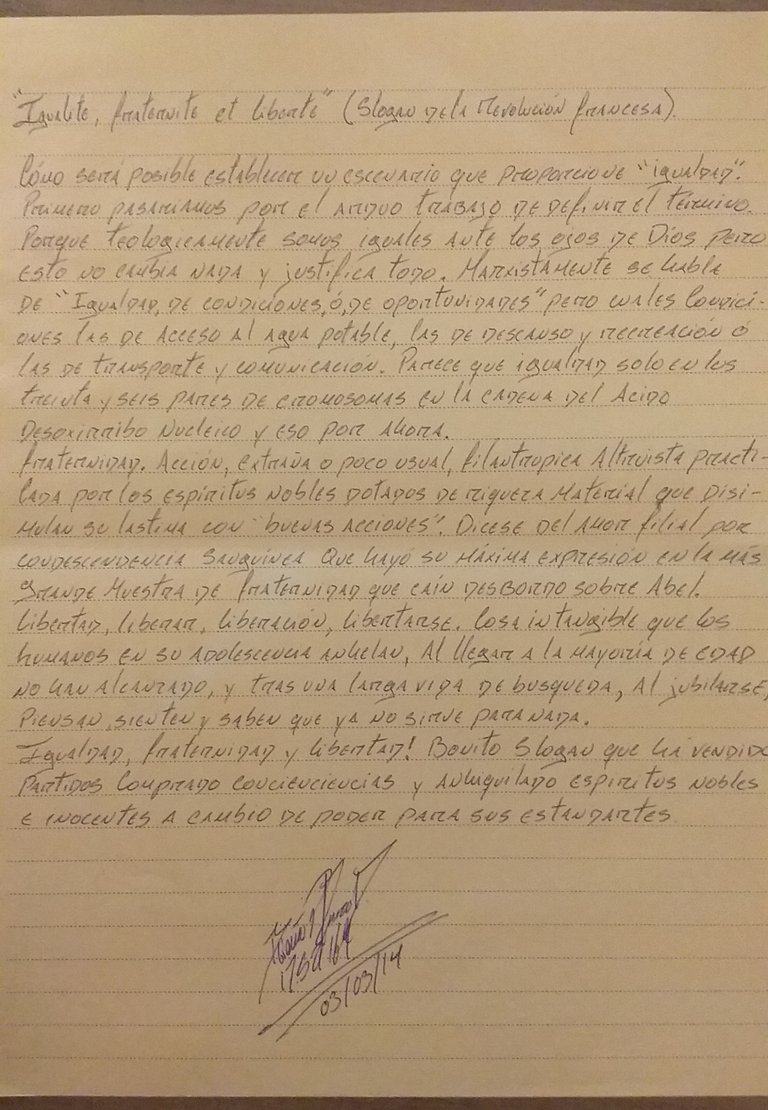 "Igualite, fraternite et liberte" (Slogan de la Revolución francesa).
Cómo será posible establecer un escenario que proporcione "igualdad".
Primero pasariamos por el arduo trabajo de definir el término.
Porque teologicamente somos iguales ante los ojos de Dios pero
esto no cambia nada y justifica todo. Marxistamente se habla
de "Igualdad, de condiciones, ó, de oportunidades" pero cuales Condici-
ones las de acceso al agua potable, las de descanso y recreación ó
las de transporte y comunicación. Parece que igualdad solo en los
treinta y seis pares de cromosomas en la cadena del Acido
Desoxirribo Nucleico y eso por ahora.
fraternidad. Acción, extraña o poco usual, filantropica Altruista practi-
cada por los espiritus nobles dotados de riqueza material que disi-
mulan su lastima con "buenas acciones". Dicese del amor filial por
condescendencia sanguínea Que hayó su máxima expresión en la más
grande muestra de fraternidad que caín desbordo sobre Abel.
Libertad, liberar, liberación, libertarse. Cosa intangible que los
humanos en su adolescencia anhelan, Al llegar a la mayoría de edad
no han alcanzado, y tras una larga vida de busqueda, al jubilarse,
piensan, sienten y saben que ya no sirve para nada.
Igualdad, fraternidad y libertad! Bonito Slogan que ha vendido
Partidos comprado concienciencias y aniquilado espiritus nobles
e inocentes a cambio de poder para sus estandartes
03/03/14